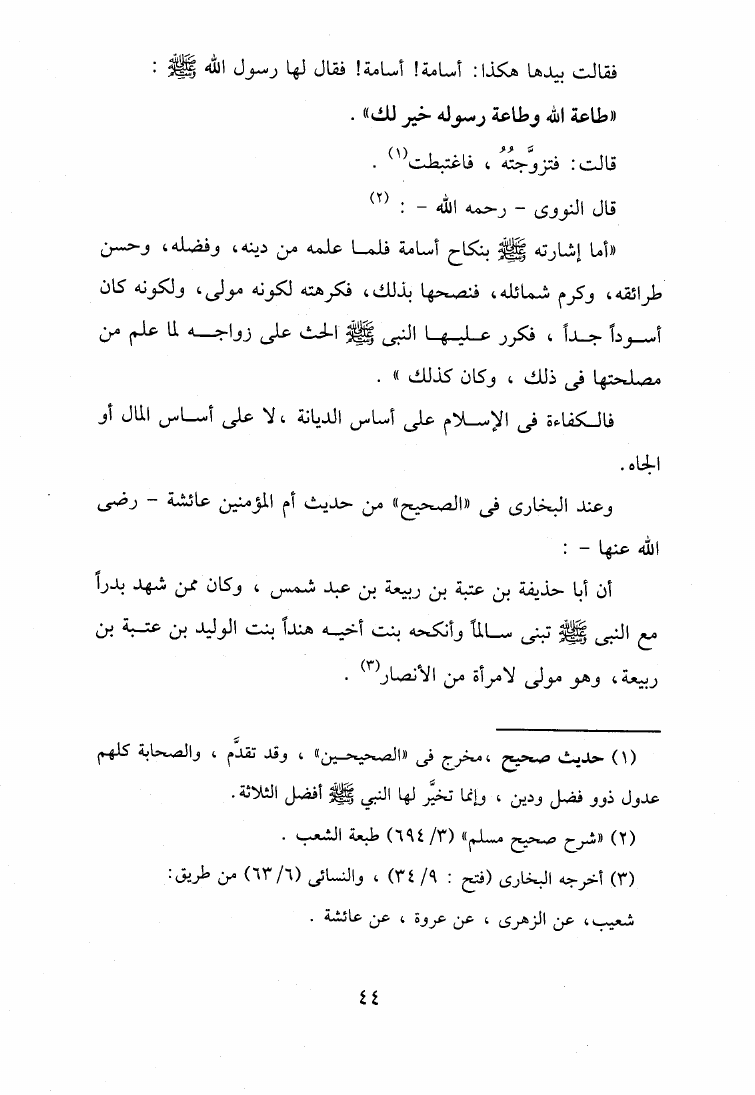 فقالت بيدها هكذا: أسامة! أسامة! فقال لها رسول الله ﷺ :
«طاعة الله وطاعة رسوله خير لك» .
قالت: فتزوَّجتُهُ ، فاغتبطت(١) .
قال النووى – رحمه الله – : (٢)
«أما إشارته ﷺ بنكاح أسامة فلمـا علمه من دينه، وفضله، وحسن
طرائقه، وكرم شمائله، فنصحها بذلك، فكرهته لكونه مولى، ولكونه كان
أسـوداً جـداً ، فكرر عـليـهـا النبى ﷺ الحث على زواجــه لما علم من
مصلحتها فى ذلك ، وكان كذلك » .
فالـكفاءة فى الإسـلام على أساس الديانة ،لا على أسـاس المال أو
الجاه.
وعند البخارى فى «الصحيح» من حديث أم المؤمنين عائشة – رضى
الله عنها – :
أن أبا حذيفة بن عتبة بن ربيعة بن عبد شمس ، وكان ممن شهد بدراً
مع النبى ﷺ تبنى سـالماً وأنكحه بنت أخيـه هنداً بنت الوليد بن عتـبة بن
ربيعة، وهو مولى لامرأة من الأنصار(٣) .
(١) حديث صحيح ،مخرج فى «الصحيحـين» ، وقد تقدَّم ، والصحابة كلهم
عدول ذوو فضل ودين ، وإنما تخيَّر لها النبي ﷺ أفضل الثلاثة.
(٢) «شرح صحيح مسلم» (٣/ ٦٩٤) طبعة الشعب .
(٣) أخرجه البخارى (فتح : ٩/ ٣٤) ، والنسائى (٦/ ٦٣) من طريق:
شعيب، عن الزهرى ، عن عروة ، عن عائشة .
٤٤